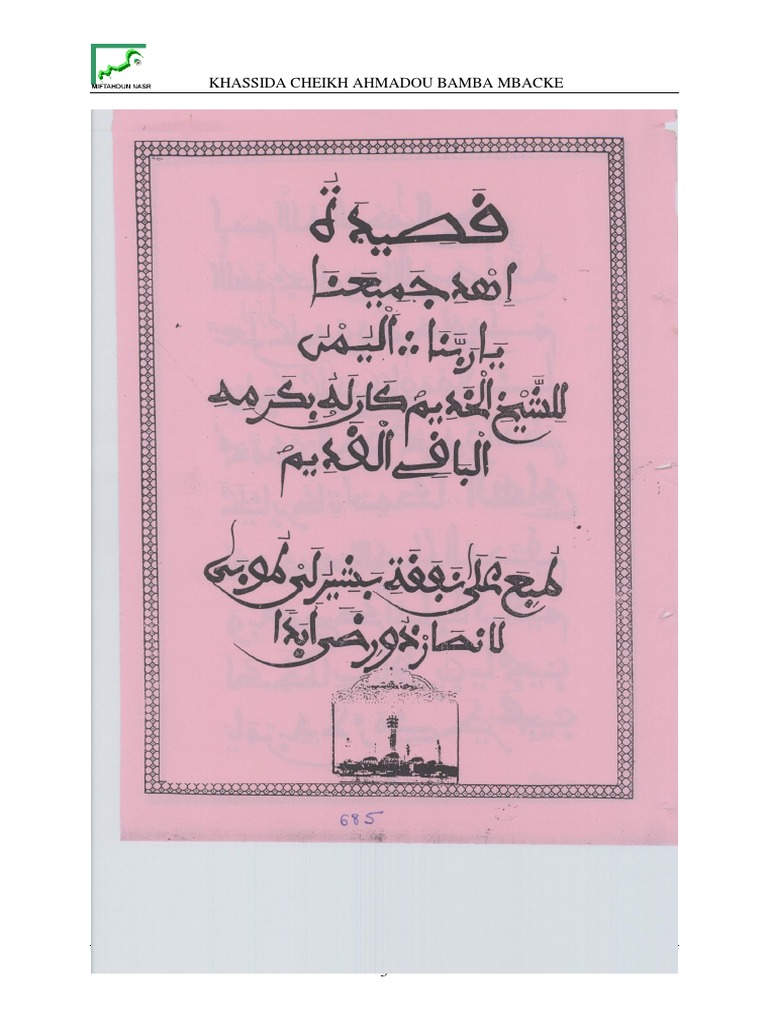 MIFTAHOUN NASR
KHASSIDA CHEIKH AHMADOU BAMBA MBACKE
قَصِيدَةُ
اِهْدِ جَمِيعَنَا
يَا رَبَّنَا :: الْيَمَنْ
لِلشَّيْخِ الْخَدِيمْ كَانَ لَهُ بِكَرَمِهِ
الْبَاقِي الْقَدِيمْ
طبع على نفقة بشير لى طوبى
رضى ابدا
685